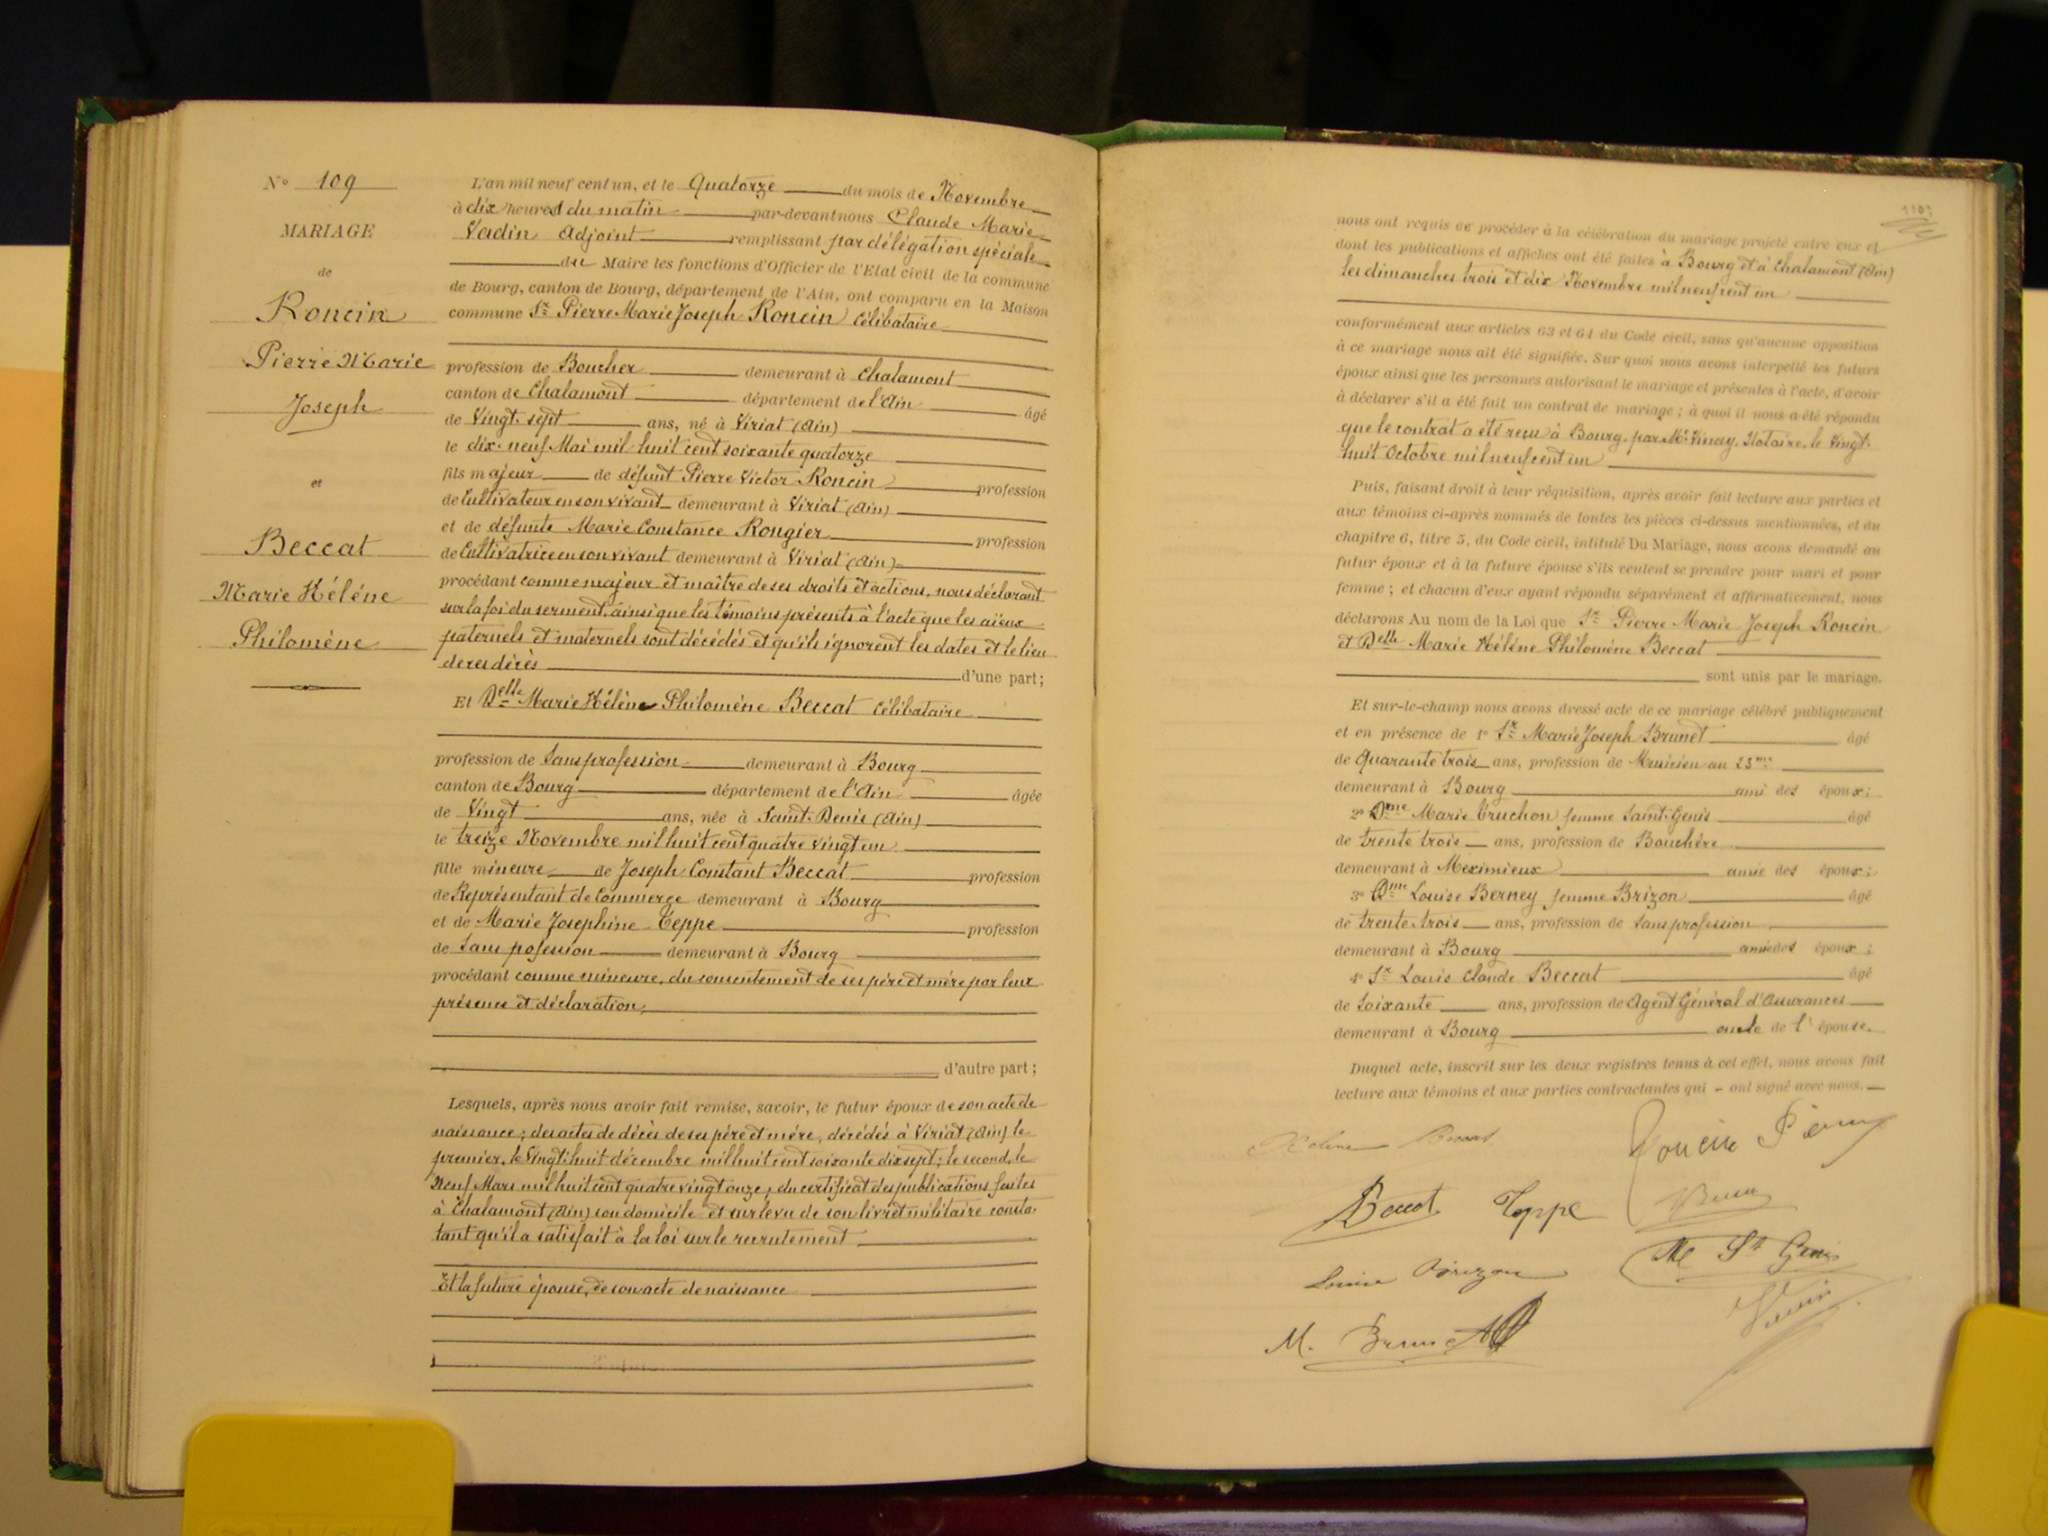 N° 109
MARIAGE
de
Roncin
Pierre Marie
Joseph
et
Beccat
Marie Hélène
Philomène
L'an mil neuf cent un, et le Quatorze du mois de Novembre
à dix heures du matin par-devant nous Claude Marie
Vadin Adjoint remplissant par délégation spéciale
du Maire les fonctions d'Officier de l'Etat civil de la commune
de Bourg, canton de Bourg, département de l'Ain, ont comparu en la Maison
commune Sr Pierre Marie Joseph Roncin Célibataire
profession de Boucher demeurant à Chalamont
canton de Chalamont département de l'Ain âgé
de Vingt-sept ans, né à Viriat (Ain)
le dix-neuf Mai mil huit cent soixante quatorze
fils majeur de défunt Pierre Victor Roncin profession
de Cultivateur en son vivant demeurant à Viriat (Ain)
et de défunte Marie Constance Rongier profession
de Cultivatrice en son vivant demeurant à Viriat (Ain)
procédant comme majeur et maître de ses droits et actions, nous déclarant
sur la foi du serment, ainsi que les témoins présents à l'acte que les aïeux
paternels et maternels sont décédés et qu'ils ignorent les dates et le lieu
de ces décès d'une part;
Et Delle Marie Hélène Philomène Beccat Célibataire
profession de Sans profession demeurant à Bourg
canton de Bourg département de l'Ain âgée
de Vingt ans, née à Saint-Denis (Ain)
le treize Novembre mil huit cent quatre vingt un
fille mineure de Joseph Constant Beccat profession
de Représentant de Commerce demeurant à Bourg
et de Marie Josephine Teppe profession
de Sans pofession demeurant à Bourg
procédant comme mineure, du consentement de ses père et mère par leur
présence et déclaration,
d'autre part;
Lesquels, après nous avoir fait remise, savoir, le futur époux de son acte de
naissance; des actes de décès de ses père et mère, décédés à Viriat (Ain) le
premier, le Vingt huit décembre mil huit cent soixante dix sept; le second, le
Neuf Mars mil huit cent quatre vingt onze, du certificat des publications faites
à Chalamont (Ain) son domicile et sur le vu de son livret militaire consta-
tant qu'il a satisfait à la loi sur le recrutement
Et la future épouse, de son acte de naissance
nous ont requis de procéder à la célébration du mariage projeté entre eux et
dont les publications et affiches ont été faites à Bourg et à Chalamont (Ain)
les dimanches trois et dix Novembre mil neuf cent un
conformément aux articles 63 et 64 du Code civil, sans qu'aucune opposition
à ce mariage nous ait été signifiée. Sur quoi nous avons interpellé les futurs
époux ainsi que les personnes autorisant le mariage et présentes à l'acte, d'avoir
à déclarer s'il a été fait un contrat de mariage; à quoi il nous a été répondu
que le contrat a été reçu à Bourg, par Me Vinay, Notaire, le Vingt-
huit Octobre mil neuf cent un
Puis, faisant droit à leur réquisition, après avoir fait lecture aux parties et
aux témoins ci-après nommés de toutes les pièces ci-dessus mentionnées, et du
chapitre 6, titre 5, du Code civil, intitulé Du Mariage, nous avons demandé au
futur époux et à la future épouse s'ils veulent se prendre pour mari et pour
femme; et chacun d'eux ayant répondu séparément et affirmativement, nous
déclarons Au nom de la Loi que Sr Pierre Marie Joseph Roncin
et Delle Marie Hélène Philomène Beccat
sont unis par le mariage.
Et sur-le-champ nous avons dressé acte de ce mariage célébré publiquement
et en présence de 1° Sr Marie Joseph Brunet âgé
de Quarante trois ans, profession de Musicien au 23me
demeurant à Bourg ami des époux;
2° Dme Marie Truchon femme Saint-Genis âgé
de trente trois ans, profession de Bouchère
demeurant à Meximieux amie des époux;
3° Dme Louise Berney femme Brizon âgé
de trente-trois ans, profession de Sans profession
demeurant à Bourg amie des époux;
4° Sr Louis Claude Beccat âgé
de Soixante ans, profession de Agent Général d'Assurances
demeurant à Bourg oncle de l'épouse.
Duquel acte, inscrit sur les deux registres tenus à cet effet, nous avons fait
lecture aux témoins et aux parties contractantes qui - ont signé avec nous.
Hélène Beccat
Roncin Pierre
Beccat Teppe
Louise Brizon
M St Genis
M. Brunet
Vadin